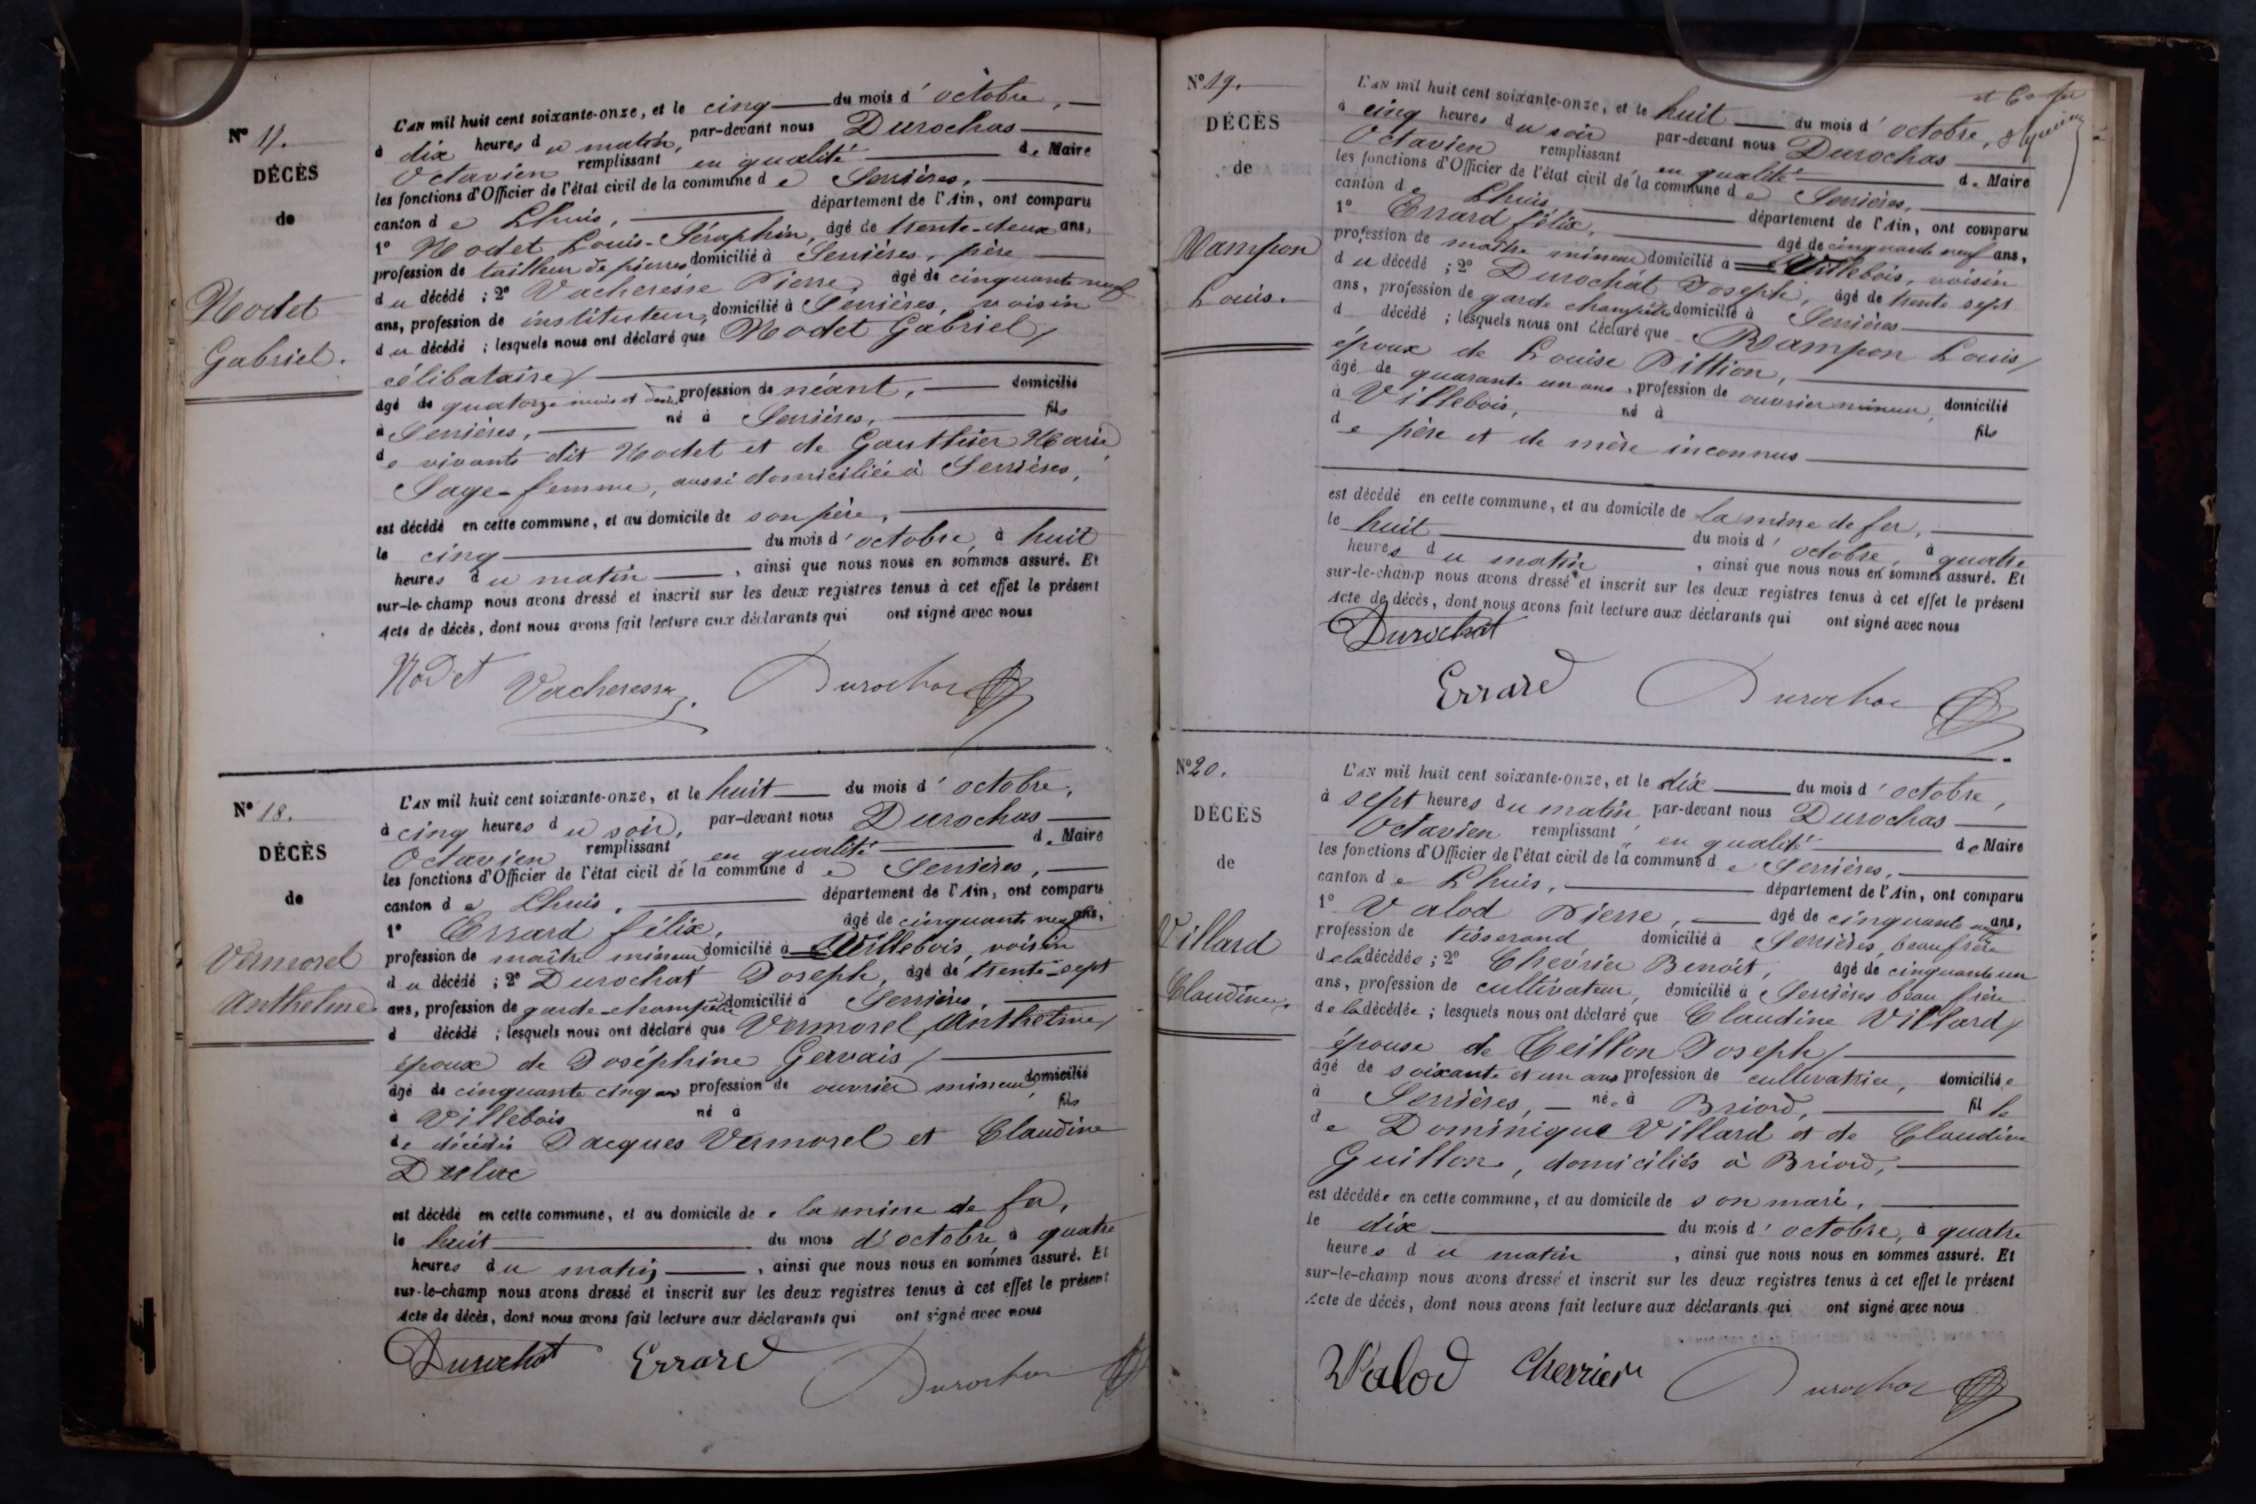 N° 17.
DÉCÈS
de
Nodet
Gabriel.
L'AN mil huit cent soixante-onze, et le cinq du mois d'octobre,
à dix heures du matin, par-devant nous Durochas
Octavien remplissant en qualité de Maire
les fonctions d'Officier de l'état civil de la commune de Serrières,
canton de Lhuis, département de l'Ain, ont comparu
1° Nodet Louis-Séraphin, âgé de trente-deux ans,
profession de tailleur de pierres domicilié à Serrières, père
du décédé ; 2° Vacheresse Pierre, âgé de cinquante neuf
ans, profession de instituteur, domicilié à Serrières, voisin
du décédé ; lesquels nous ont déclaré que Nodet Gabriel
célibataire
âgé de quatorze mois et demi profession de néant, domicilié
à Serrières, né à Serrières, fils
de vivants dit Nodet et de Gauthier Marie
Sage-femme, aussi domiciliée à Serrières,
est décédé en cette commune, et au domicile de son père,
le cinq du mois d'octobre, à huit
heures du matin, ainsi que nous nous en sommes assuré. Et
sur-le-champ nous avons dressé et inscrit sur les deux registres tenus à cet effet le présent
Acte de décès, dont nous avons fait lecture aux déclarants qui ont signé avec nous
Nodet Vacheresse Durochas
N° 18.
DÉCÈS
de
Vermorel
Anthelme
L'AN mil huit cent soixante-onze, et le huit du mois d'octobre,
à cinq heures du soir, par-devant nous Durochas
Octavien remplissant en qualité de Maire
les fonctions d'Officier de l'état civil de la commune de Serrières,
canton de Lhuis, département de l'Ain, ont comparu
1° Errard félix, âgé de cinquante neuf ans,
profession de maître mineur domicilié à Villebois, voisin
du décédé ; 2° Durochat Joseph, âgé de trente-sept
ans, profession de garde-champêtre domicilié à Serrières,
d décédé ; lesquels nous ont déclaré que Vermorel Anthelme
époux de Joséphine Gervais
âgé de cinquante cinq ans profession de ouvrier mineur, domicilié
à Villebois né à fils
de décédés Jacques Vermorel et Claudine
est décédé en cette commune, et au domicile de la mine de fer,
le huit du mois d'octobre à quatre
heures du matin, ainsi que nous nous en sommes assuré. Et
sur-le-champ nous avons dressé et inscrit sur les deux registres tenus à cet effet le présent
Acte de décès, dont nous avons fait lecture aux déclarants qui ont signé avec nous
Durochat Errard Durochas
N° 19.
DÉCÈS
de
Rampon
Louis.
L'AN mil huit cent soixante-onze, et le huit du mois d'octobre,
à cinq heures du soir par-devant nous Durochas
Octavien remplissant en qualité de Maire
les fonctions d'Officier de l'état civil de la commune de Serrières,
canton de Lhuis, département de l'Ain, ont comparu
1° Errard félix, âgé de cinquante neuf ans,
profession de maître mineur domicilié à Villebois, voisin
du décédé ; 2° Durochat Joseph, âgé de trente sept
ans, profession de garde champêtre domicilié à Serrières
d décédé ; lesquels nous ont déclaré que Rampon Louis
époux de Louise Pittion,
âgé de quarante un ans, profession de ouvrier mineur, domicilié
à Villebois, né à fils
de père et de mère inconnus
est décédé en cette commune, et au domicile de la mine de fer,
le huit du mois d'octobre, à quatre
heures du matin, ainsi que nous nous en sommes assuré. Et
sur-le-champ nous avons dressé et inscrit sur les deux registres tenus à cet effet le présent
Acte de décès, dont nous avons fait lecture aux déclarants qui ont signé avec nous
Durochat
Errard Durochas
N° 20.
DÉCÈS
de
Villard
Claudine.
L'AN mil huit cent soixante-onze, et le dix du mois d'octobre,
à sept heures du matin par-devant nous Durochas
Octavien remplissant en qualité de Maire
les fonctions d'Officier de l'état civil de la commune de Serrières,
canton de Lhuis, département de l'Ain, ont comparu
1° Valod Pierre, âgé de cinquante ans,
profession de tisserand domicilié à Serrières, beau frère
de la décédée ; 2° Chevrier Benoit, âgé de cinquante un
ans, profession de cultivateur, domicilié à Serrières beau frère
de la décédée ; lesquels nous ont déclaré que Claudine Villard
épouse de Teillon Joseph
âgé de soixante et un ans profession de cultivatrice, domiciliée
à Serrières, née à Briord, fille
de Dominique Villard et de Claudine
Guillon, domiciliés à Briord,
est décédée en cette commune, et au domicile de son mari,
le dix du mois d'octobre, à quatre
heures du matin, ainsi que nous nous en sommes assuré. Et
sur-le-champ nous avons dressé et inscrit sur les deux registres tenus à cet effet le présent
Acte de décès, dont nous avons fait lecture aux déclarants qui ont signé avec nous
Valod Chevrier Durochas